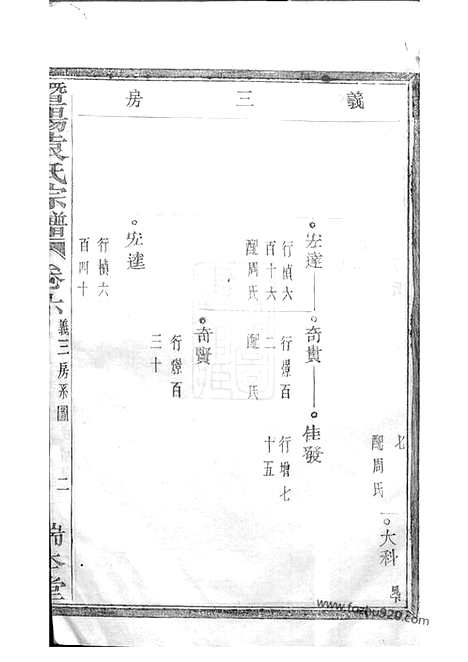 義三房
七
配周氏
大科
宏達
行楨六
百十六
配周氏
奇貴
行爆百
二
配 氏
佳發
行增七
十五
奇賢
行爆百
三十
宏達
行楨六
百四十
暨陽袁氏宗譜
卷六
義三房系圖
二
www.fozhu920.com